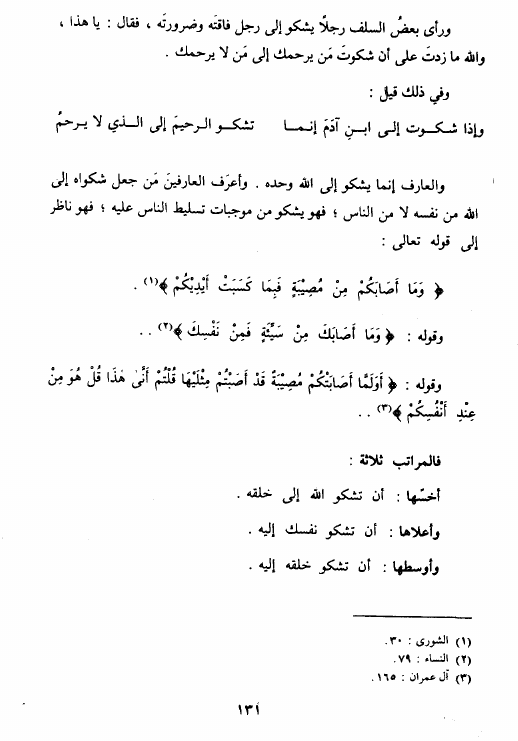 ورأى بعضُ السلف رجلًا يشكو إلى رجل فاقتَه وضرورتَه ، فقال : يا هذا ،
والله ما زدتَ على أن شكوتَ مَن يرحمك إلى مَن لا يرحمك .
وفي ذلك قيل :
وإذا شكـوت إلـى ابـنِ آدَمَ إنـمـا تشكـو الـرحيمَ إلى الـذي لا يـرحمُ
والعارف إنما يشكو إلى الله وحده . وأعرَف العارفينَ مَن جعل شكواه إلى
الله من نفسه لا من الناس ؛ فهو يشكو من موجبات تسليط الناس عليه ؛ فهو ناظر
إلى قوله تعالى :
﴿ وَمَا أَصَابَكُمْ مِنْ مُصِيْبَةٍ فَبِمَا كَسَبَتْ أَيْدِيْكُمْ ﴾(١) .
وقوله : ﴿ وَمَا أَصَابَكَ مِنْ سَيِّئَةٍ فَمِنْ نَفْسِكَ ﴾(٢) . .
وقوله : ﴿ أَوَلَمَّا أَصَابَتْكُمْ مُصِيْبَةٌ قَدْ أَصَبْتُمْ مِثْلَيْهَا قُلْتُمْ أَنَّى هَذَا قُلْ هُوَ مِنْ
عِنْدِ أَنْفُسِكُمْ ﴾(٣) . .
فالمراتب ثلاثة :
أخسّها : أن تشكو الله إلى خلقه .
وأعلاها : أن تشكو نفسك إليه .
وأوسطها : أن تشكو خلقه إليه .
(١) الشورى : ٣٠.
(٢) النساء : ٧٩.
(٣) آل عمران : ١٦٥.
١٣١